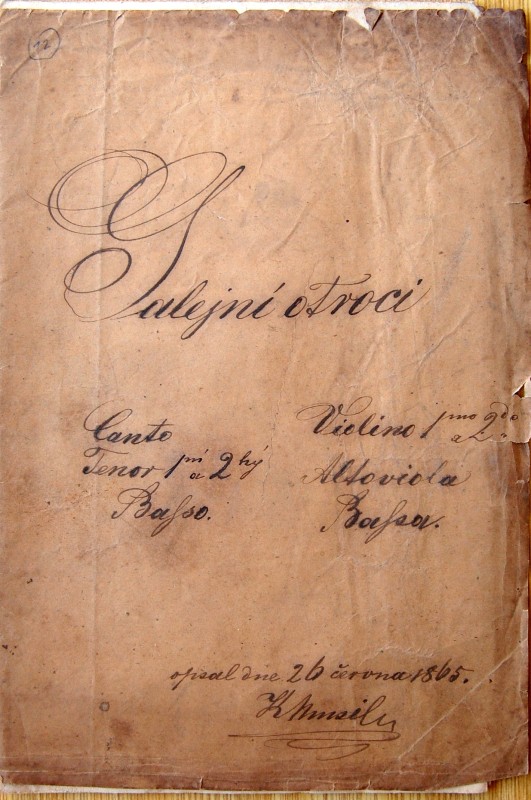 12
Galejní otroci
Canto
Tenor 1ní a 2hý
Basso.
Violino 1mo a 2do
Altoviola
Bassa.
opsal dne 26 června 1865.